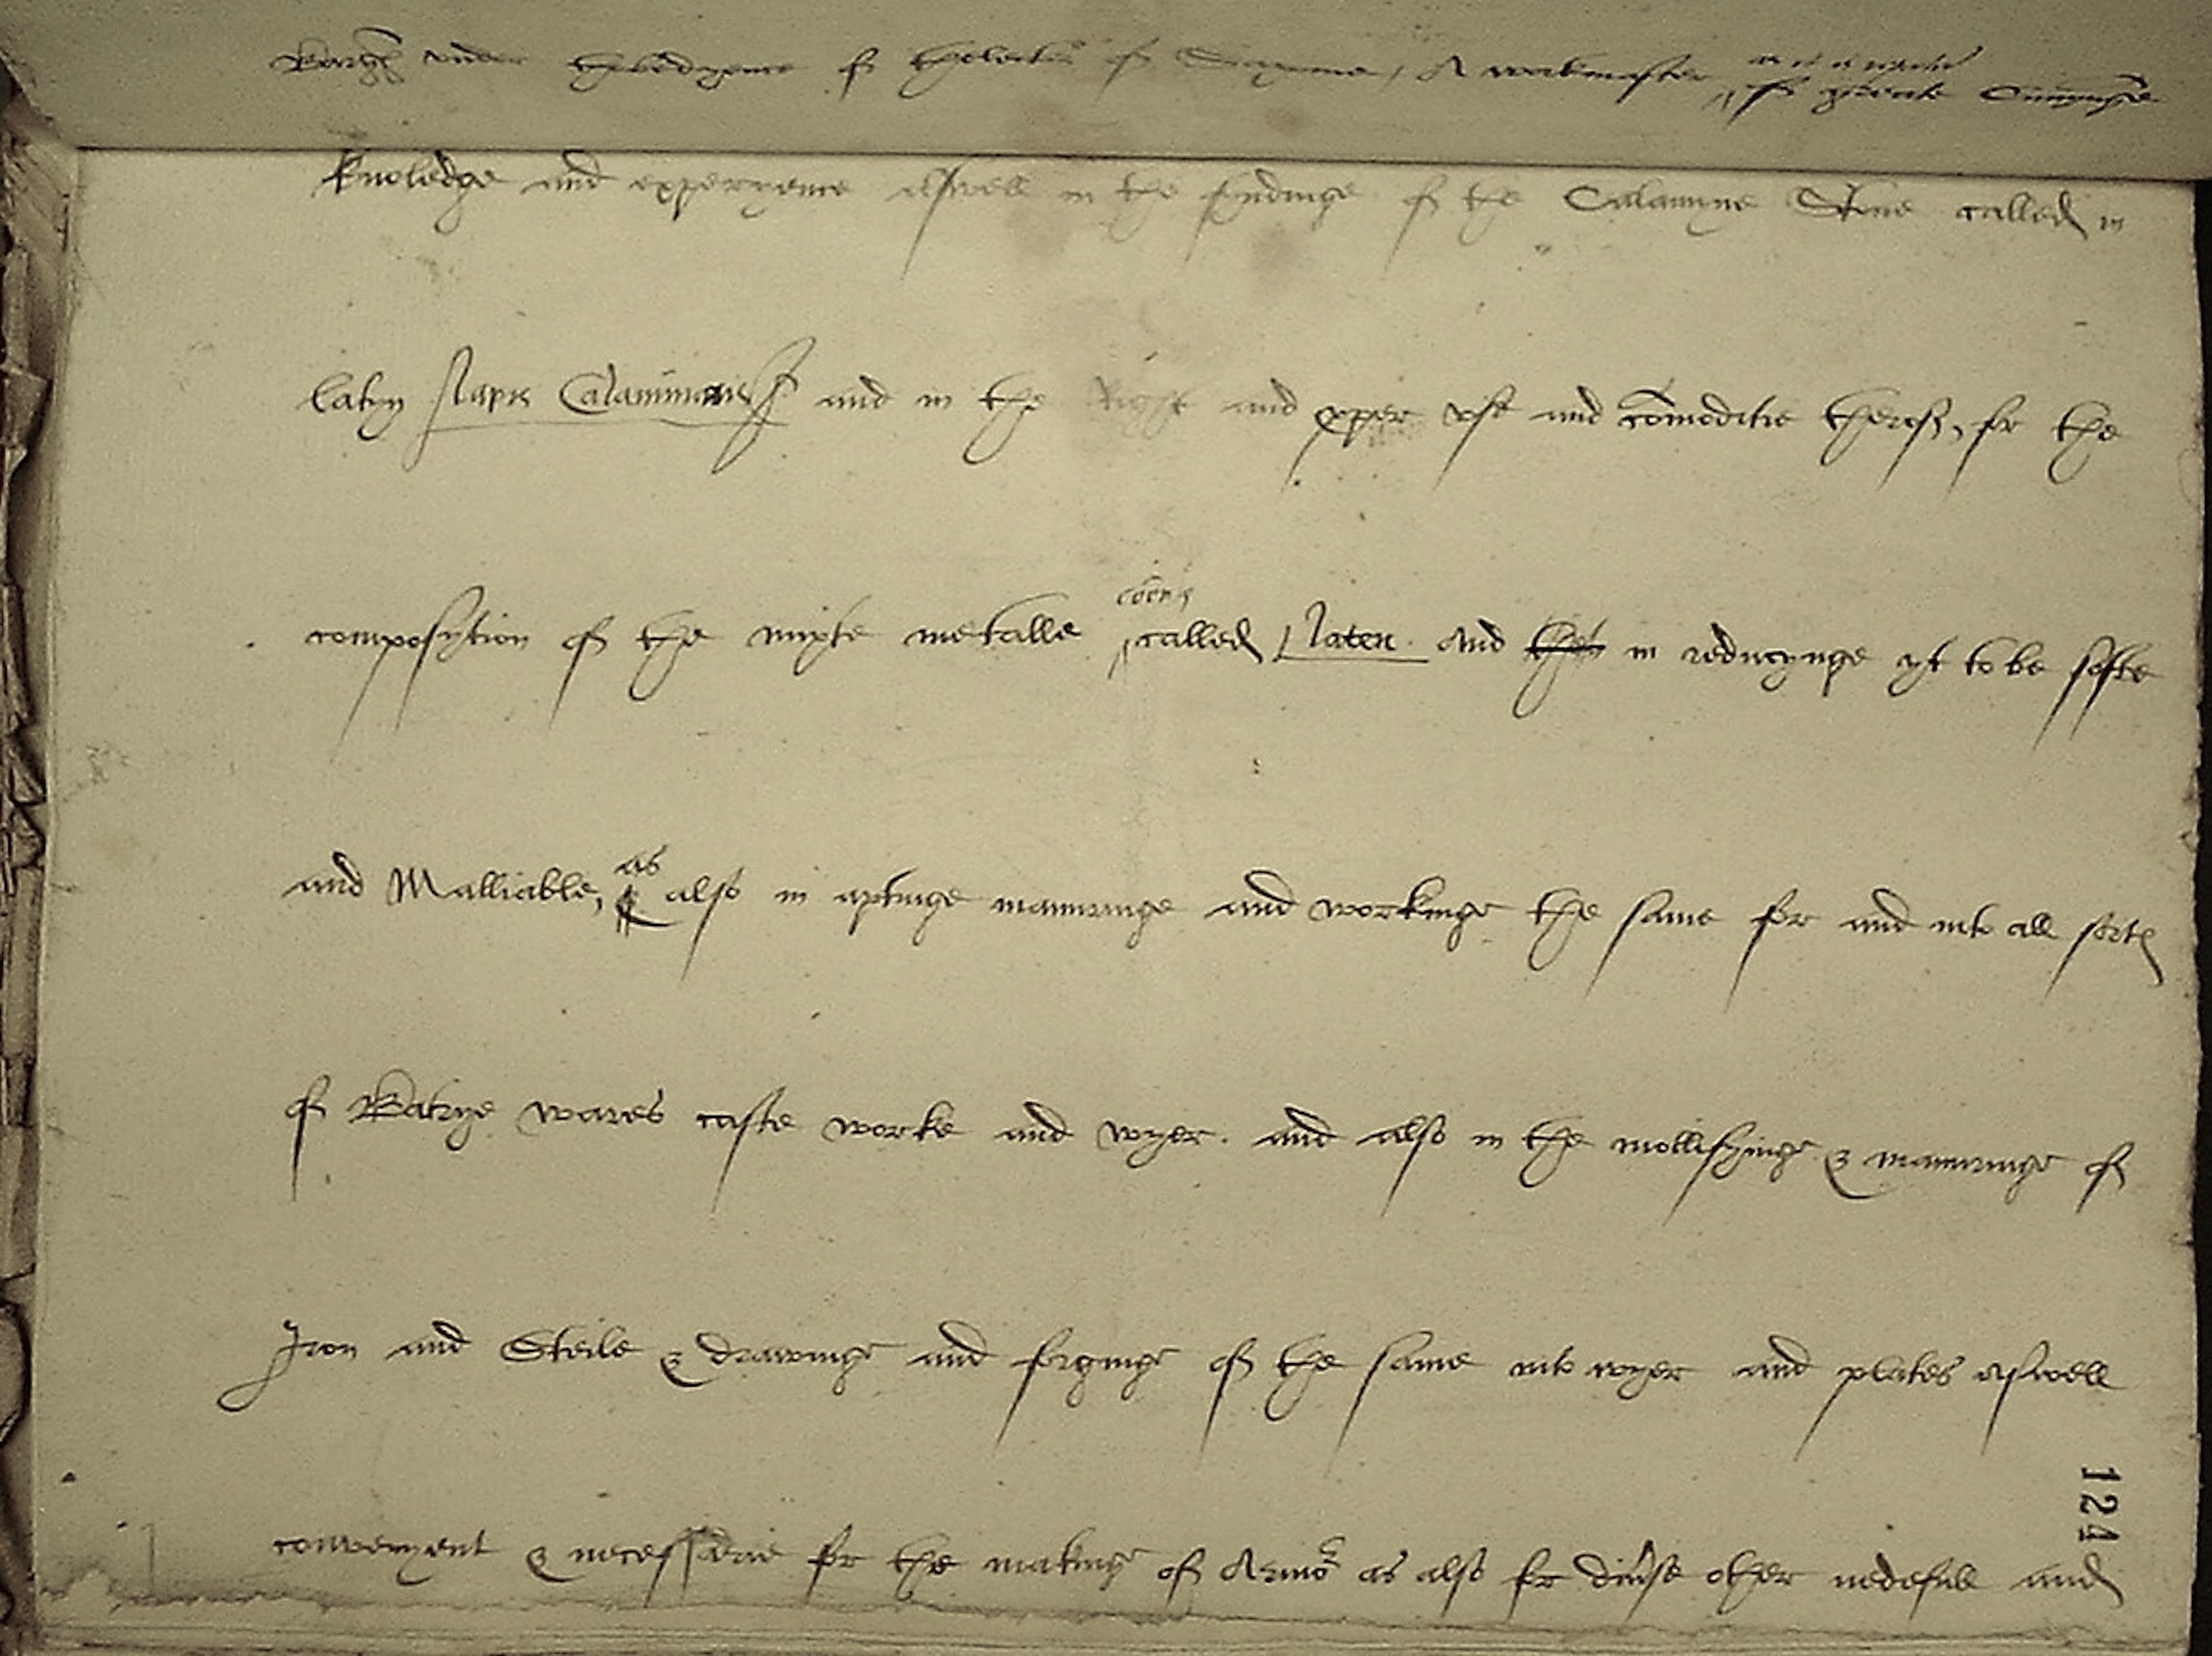 under thobedyence of thelector of Saxonie, A workmaster of greate Cunnynge
knoledge and experyence aswell in the fyndinge of the Calamyne Stone called in
latyn lapis Calaminaris and in the Right and proper vse and comoditie therof, for the
composytion of the mixte metalle called laten. And in reducynge yt to be softe
and Malliable, as also in aptinge manuringe and workinge the same for and into all sortes
of Batrye wares caste worke and wyer. and also in the mollifyinge & manuringe of
Iron and Steile & drawinge and forginge of the same into wyer and plates aswell
convenyent & necessarie for the makinge of Armor as also for diuerse other nedefull and
121